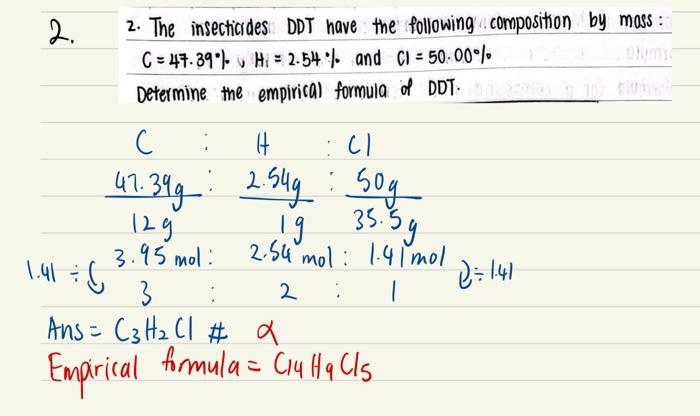 2.
2. The insecticides DDT have the following composition by mass :
C = 47.39% , H = 2.54 % and Cl = 50.00%
Determine the empirical formula of DDT.
C : H : Cl
47.39g : 2.54g : 50g
12g 1g 35.5g
1.41 ÷ 3.95 mol : 2.54 mol : 1.41 mol ÷ 1.41
3 : 2 : 1
Ans = C3H2Cl #
Empirical formula = C14H9Cl5